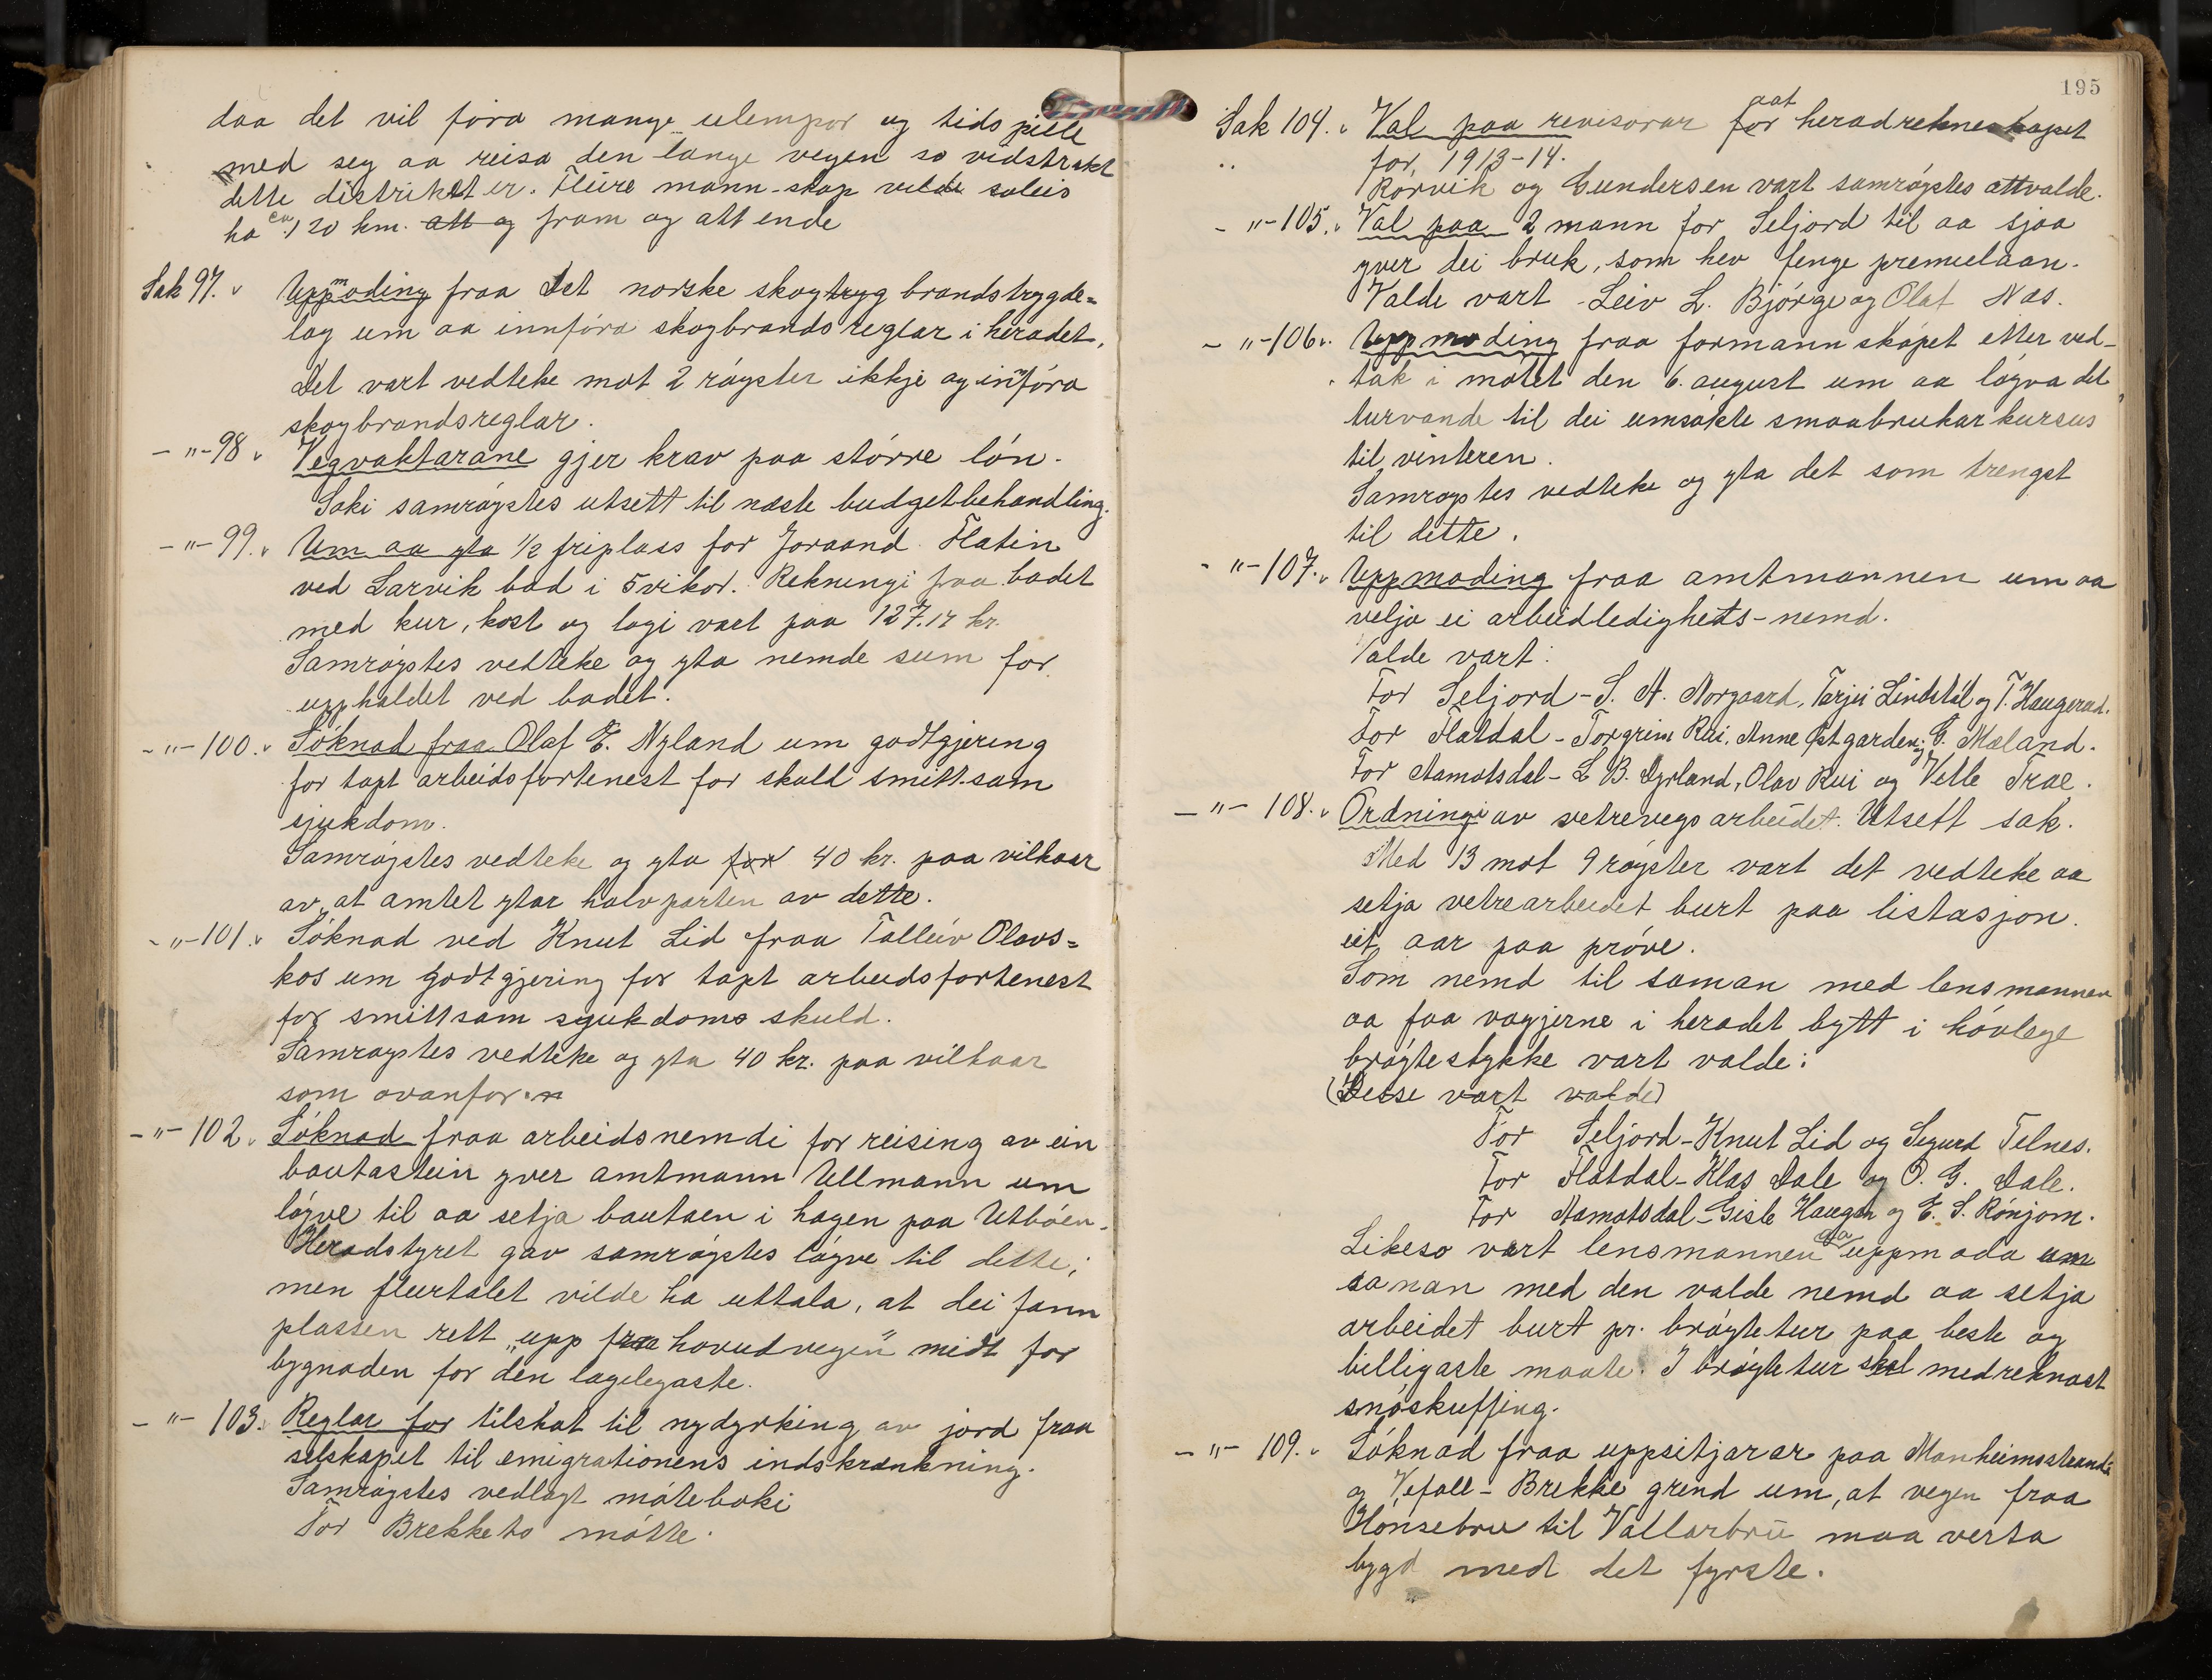 daa det vil föra mange ulempor og tidspille
med seg aa reisa den lange vegen so vidstrakt
dette distriktet er. Fleire mann-skap vilde soleis
ha ca. 120 km. att og fram og att ende
Sak 97. Uppmoding fraa Det norske skogtryg brandstrygde=
lag um aa innföra skogbrandsreglar i heradet.
Det vart vedteke mot 2 röyster ikkje og innföra
skogbrandsreglar.
-"-98 Vegvaktarane gjer krav paa större lön.
Saki samröystes utsett til næste budgetbehandling.
-"-99. Um aa yta 1/2 friplass for Joraand Flatin
ved Larvik bad i 5 vikor. Rekningi fraa badet
med kur, kost og logi vart paa 127.17 kr.
Samröystes vedteke og yta nemde sum for
upphaldet ved badet.
-"-100. Söknad fraa Olaf E. Nyland um godtgjering
for tapt arbeidsfortenest for skuld smittsam
sjukdom.
Samröystes vedteke og yta for 40 kr. paa vilkaar
av, at amtet ytar halvparten av dette.
-"-101. Söknad ved Knut Lid fraa Talleiv Olavs=
kos um godtgjering for tapt arbeidsfortenest
for smittsam sjukdoms skuld.
Samröystes vedteke og yta 40 kr. paa vilkaar
som ovanfor.
-"-102. Söknad fraa arbeidsnemdi for reising av ein
bautastein yver amtmann Ullmann um
löyve til aa setja bautaen i hagen paa Utböen.
Heradstyret gav samröystes löyve til dette;
men fleirtalet vilde ha uttala, at dei fann
plassen rett „upp fraa hovudvegen" midt for
bygnaden for den lagelegaste.
-"-103. Reglar for tilskot til nydyrking av jord fraa
selskapet til emigrationens indskrænkning.
Samröystes vedlagt möteboki
For Brekketo mötte.
195
Sak 104. Val paa revisorar for aat heradrekneskapet
for 1913-14.
Rörvik og Gundersen vart samröystes attvalde.
-"-105. Val paa 2 mann for Seljord til aa sjaa
yver dei bruk, som hev fenge premielaan.
Valde vart Leiv L. Björge og Olaf Næs.
-"-106. Uppmoding fraa formannskapet etter ved-
tak i mötet den 6. august um aa löyva det
turvande til dei umsökte smaabrukarkursus
til vinteren.
Samröystes vedteke og yta det som trengst
til dette.
-"-107. Uppmoding fraa amtmannen um aa
velja ei arbeidledigheds-nemd.
Valde vart:
For Seljord - S. A. Norgaard, Tarjei Lindstöl og T. Haugerud.
For Flatdal - Torgrim Rui, Anne Östgarden og G. Mæland.
For Aamotsdal - L B. Dyrland, Olav Rui og Vetle Træe.
-"-108. Ordningi av vetrevegsarbeidet. Utsett sak.
Med 13 mot 9 röyster vart det vedteke aa
setja vetrearbeidet burt paa listasjon
eit aar paa pröve.
Som nemd til saman med lensmannen
aa faa vegjerne i heradet bytt i hövlege
bröytestykke vart valde:
(Desse vart valde)
For Seljord - Knut Lid og Sigurd Telnes.
For Flatdal - Klas Dale og O. G. Dale.
For Aamotsdal - Gisle Haugen og E. S. Rönjom.
Likeso vart lensmannen uppmoda um
saman med den valde nemd aa setja
arbeidet burt pr. bröytetur paa beste og
billigaste maate. I bröytetur skal medreknast
snöskuffing.
-"-109. Söknad fraa uppsitjarar paa Manheimsstrandi
og Vefall - Brekke grend um, at vegen fraa
Hönsebru til Vallarbru maa verta
bygd med det fyrste.